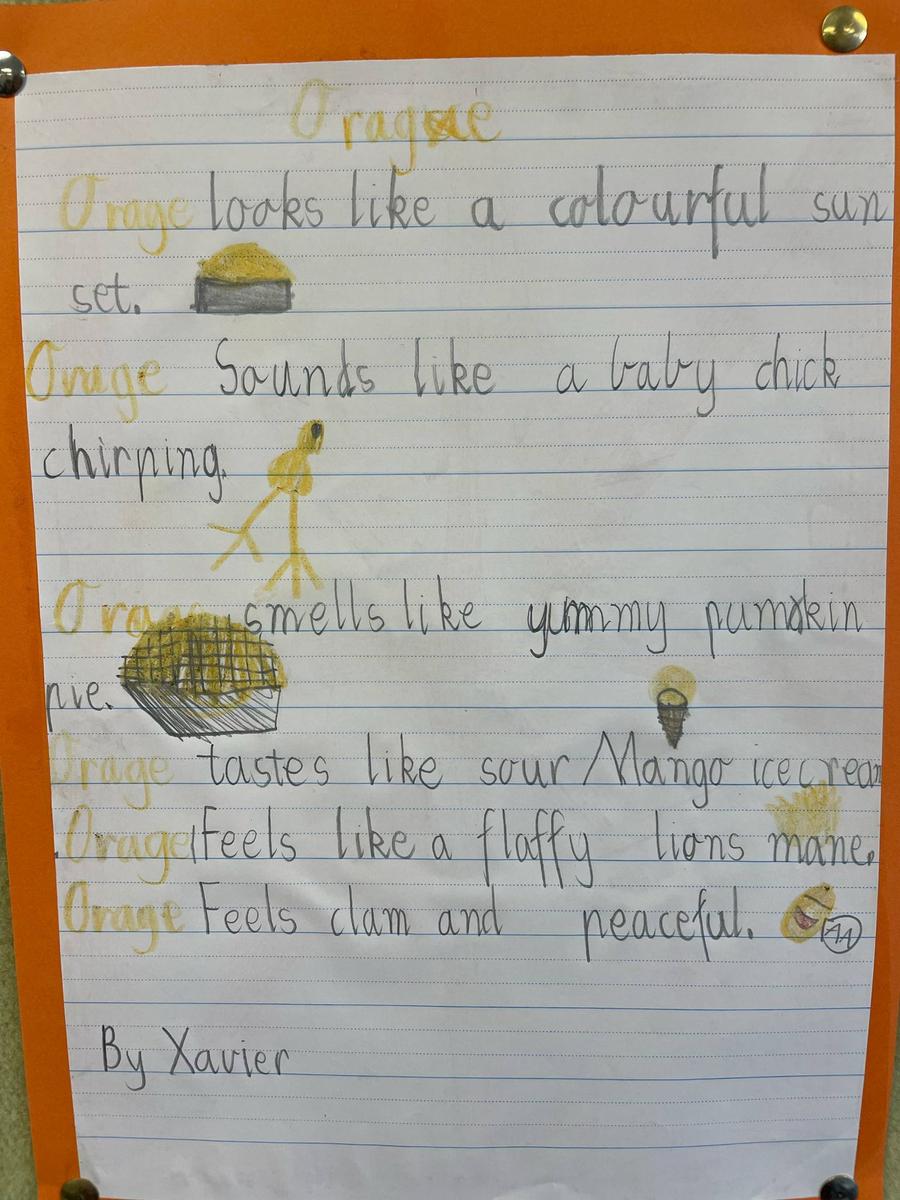 Orague
Orage looks like a colourful sun
set.
Orage Sounds like a baby chick
chirping.
smells like yummy pumkin
pie.
Orage tastes like sour Mango icecream
Orage Feels like a flaffy lions mane.
Orage Feels clam and peaceful.
By Xavier